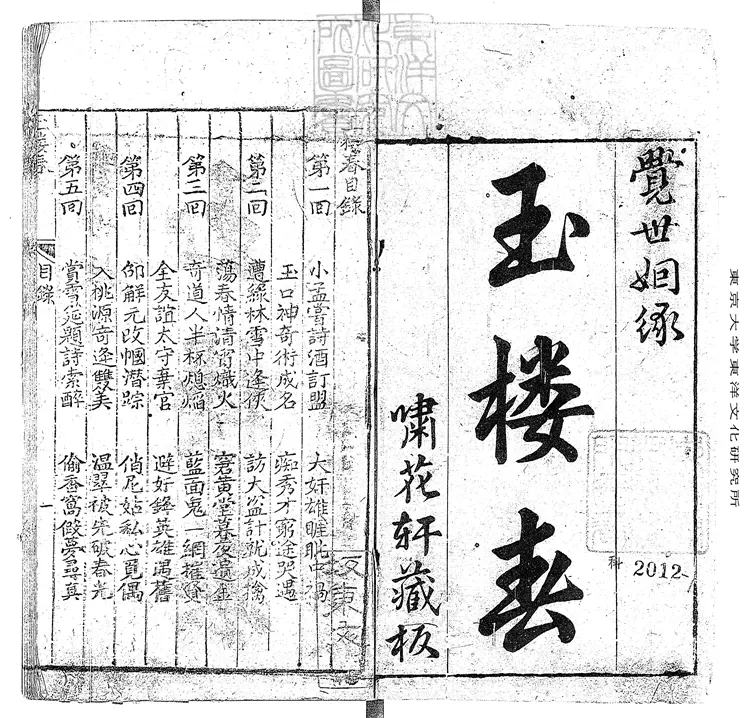 覺世姻緣
玉楼春
嘯花軒藏板
東京大学東洋文化研究所
科 2012
玉樓春目錄
第一回 小孟嘗詩酒訂盟 大奸雄睚眦中禍
玉口神奇術成名 痴秀才窮途哭遇
第二回 遭綠林雪中逢俠 訪大盜計就成擒
蕩春情清宵熾火 窘黃堂暮夜遺金
第三回 奇道人半杯熄焰 藍面鬼一網摧變
全友誼太守棄官 避奸鋒英雄遇舊
第四回 邵解元改幗潛踪 俏尼姑私心覓偶
入桃源奇逢雙美 温翠被先破春光
第五回 賞雪筵題詩索醉 偷香窩假夢尋真
目錄 一